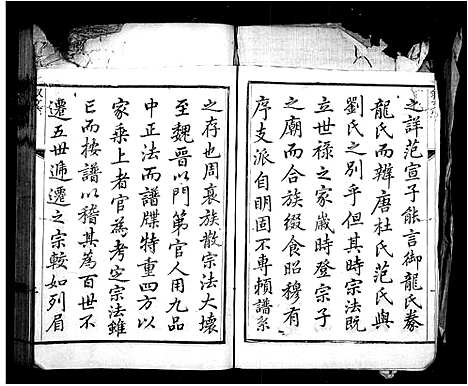 之詳范宣子能言御龍氏豢
龍氏而辨唐杜氏范氏與
劉氏之别乎但其時宗法既
立世祿之家歲時登宗子
之廟而合族綴食昭穆有
序支派自明固不專頼譜系
之存也周衰族散宗法大壞
至魏晋以門第官人用九品
中正法而譜牒特重四方以
家乘上者官為考定宗法雖
亡而按譜以稽其為百世不
遷五世遞遷之宗較如列眉